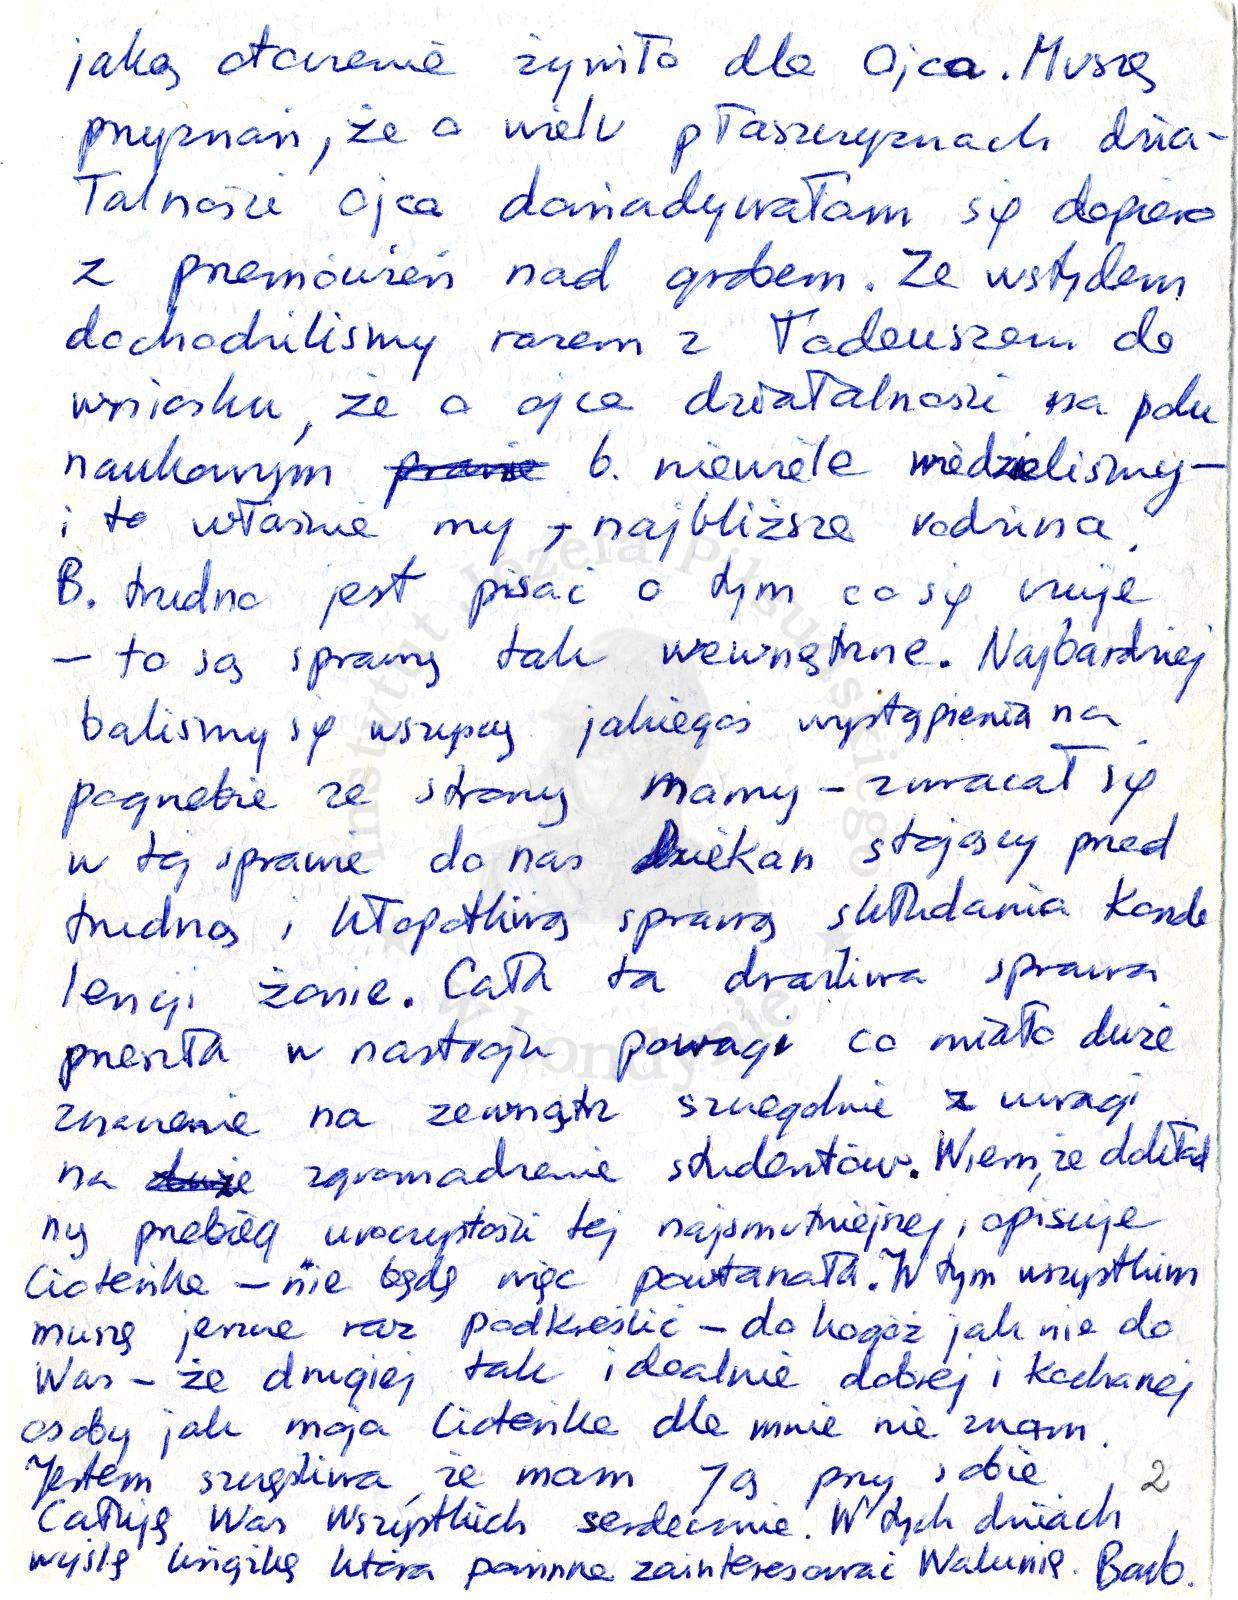 jaką otoczenie żywiło dla Ojca. Muszę
przyznać, że o wielu płaszczyznach dzia-
łalności Ojca dowiadywałam się dopiero
z przemówień nad grobem. Ze wstydem
dochodziliśmy razem z Tadeuszem do
wniosku, że o ojca działalności na polu
naukowym prawie b. niewiele wiedzieliśmy –
i to właśnie my, najbliższa rodzina.
B. trudno jest pisać o tym co się czuje
– to są sprawy tak wewnętrzne. Najbardziej
baliśmy się wszyscy jakiegoś wystąpienia na
pogrzebie ze strony Mamy – zwracał się
w tej sprawie do nas Dziekan stojący przed
trudną i kłopotliwą sprawą składania kondo
lencji żonie. Cała ta drażliwa sprawa
przeszła w nastroju powagi co miało duże
znaczenie na zewnątrz szczególnie z uwagi
na duże zgromadzenie studentów. Wiem, że dokład
ny przebieg uroczystości tej najsmutniejszej, opisuje
Cioteńka – nie będę więc powtarzała. W tym wszystkim
muszę jeszcze raz podkreślić – do kogóż jak nie do
Was – że drugiej tak idealnie dobrej i kochanej
osoby jak moja Cioteńka dla mnie nie znam.
Jestem szczęśliwa, że mam Ją przy sobie
2
Całuję Was Wszystkich serdecznie. W tych dniach
wyślę książkę która powinna zainteresować Walunię. Barb.
Instytut Józefa Piłsudskiego
w Londynie